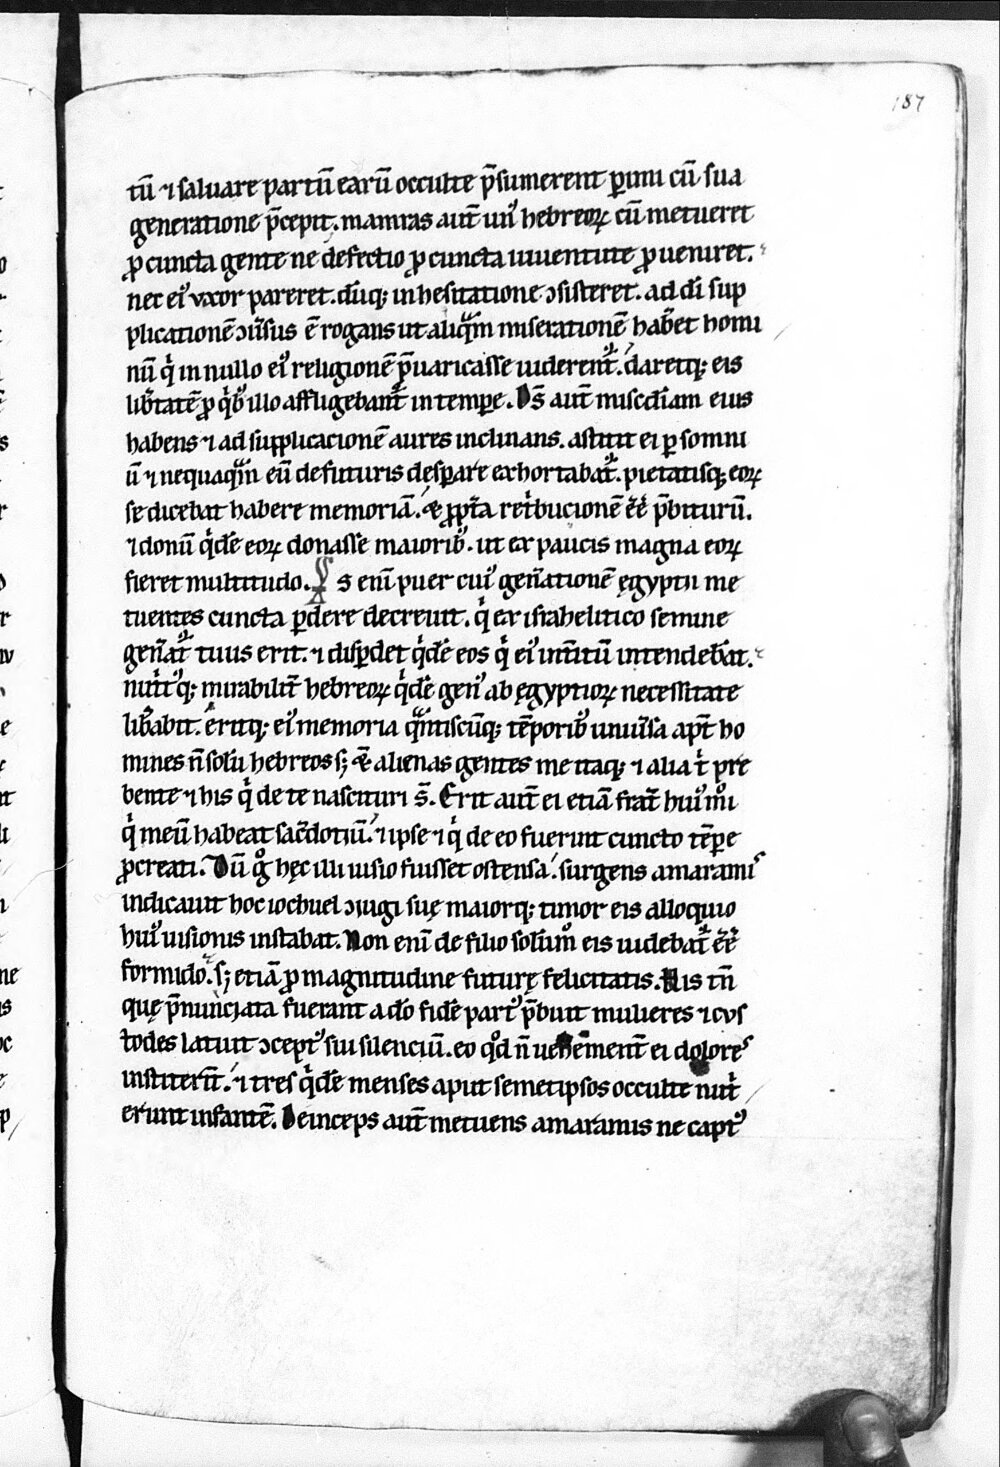 187
tū ⁊ saluare partū earū occulte p̄sumerent ꝑimi cū sua
generatione p̄cepit. mamras aut̄ uiꝰ hebreoꝝ cū metueret
ꝓ cuncta gente ne defectio ꝓ cuncta iuuentute ꝓueniret.
nec eiꝰ vxor pareret. dūq; in hesitatione ↄsisteret. ad dī sup
plicationē ↄuersus ē rogans ut aliqͣm miserationē hab̄et homi
nū qͥ in nullo eiꝰ religionē p̄uaricasse uiderent᷑. daretq; eis
lib̄tatē ꝓ qͥbꝰ illo affligebant᷑ in tempe. Ds̄ aut̄ miscd̄iam eius
habens ⁊ ad supplicacionē aures inclinans. astitit ei ꝑ somni
ū ⁊ nequaqͣm eū de futuris desꝑare exhortabat᷑. pietatisq; eoꝝ
se dicebat habere memoriā. & ꝓpt̄a ret̄bucionē eē̄ p̄biturū.
⁊ donū qͥdē eoꝝ donasse maioribꝰ. ut ex paucis magna eoꝝ
fieret multitudo. Is enī puer cuiꝰ gen̄ationē ęgyptii me
tuentes cuncta ꝑdere decreuit. qͥ ex israhelitico semine
gen̄at᷑ tuus erit. ⁊ disꝑdet qͥdē eos qͥ eiꝰ int̄itū intendebāt.
nutͥtꝰq; mirabilit̄ hebreoꝝ qͥdē genꝰ ab ęgyptioꝝ necessitate
lib̄abit. eritq; eiꝰ memoria qͣntiscūq; tēporibꝰ uniūsa apt̄ ho
mines n̄ solū hebreos s; & alienas gentes me itaq; ⁊ alia t̄ pre
bente ⁊ his qͥ de te nascituri s̄. Erit aut̄ ei etiā frat̄ huiꝰmōi
qͥ meū habeat sac̄dotiū. ⁊ ipse ⁊ qͥ de eo fuerint cuncto tēpe
ꝓcreati. Dū gͦ hęc illi uisio fuisset ostensa. surgens amaramis
indicauit hoc iochuel ↄiugi suę maiorq; timor eis alloquio
huiꝰ uisionis instabat. Non enī de filio solumͦ eis uidebat᷑ eē̄
formido. s; etiā ꝓ magnitudine futurę felicitatis. His tn̄
quę p̄nunciata fuerant a dō fidē partꝰ p̄buit mulieres ⁊ cus
todes latuit ↄceptꝰ sui silenciū. eo qͦd n̄ uehēment̄ ei dolores
institer̄t. ⁊ tres qͥdē menses aput semetipsos occulte nutͥ
erunt infantē. Deinceps aut̄ metuens amaramis ne captꝰ